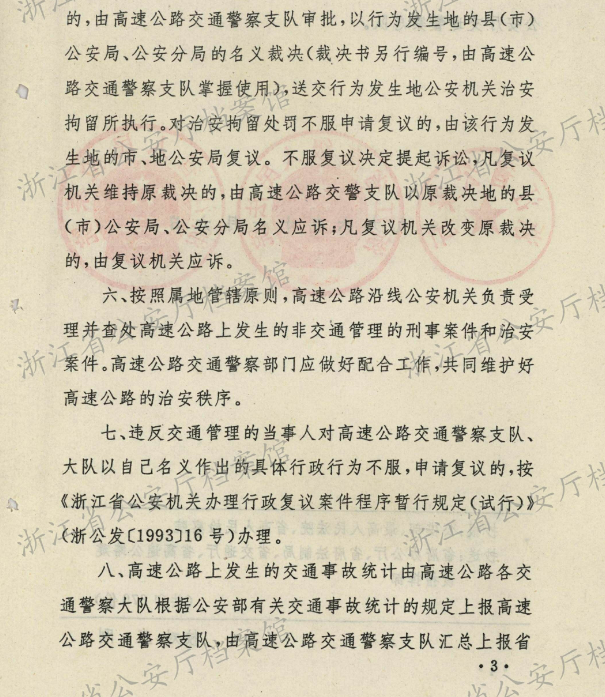 的,由高速公路交通警察支队审批,以行为发生地的县(市)
公安局、公安分局的名义裁决(裁决书另行编号,由高速公
路交通警察支队掌握使用),送交行为发生地公安机关治安
拘留所执行。对治安拘留处罚不服申请复议的,由该行为发
生地的市、地公安局复议。不服复议决定提起诉讼,凡复议
机关维持原裁决的,由高速公路交警支队以原裁决地的县
(市)公安局、公安分局名义应诉;凡复议机关改变原裁决
的,由复议机关应诉。
六、按照属地管辖原则,高速公路沿线公安机关负责受
理并查处高速公路上发生的非交通管理的刑事案件和治安
案件。高速公路交通警察部门应做好配合工作,共同维护好
高速公路的治安秩序。
七、违反交通管理的当事人对高速公路交通警察支队、
大队以自己名义作出的具体行政行为不服,申请复议的,按
《浙江省公安机关办理行政复议案件程序暂行规定(试行)》
(浙公发〔1993〕16号)办理。
八、高速公路上发生的交通事故统计由高速公路各交
通警察大队根据公安部有关交通事故统计的规定上报高速
公路交通警察支队,由高速公路交通警察支队汇总上报省
·3·
浙江省公安厅档案馆